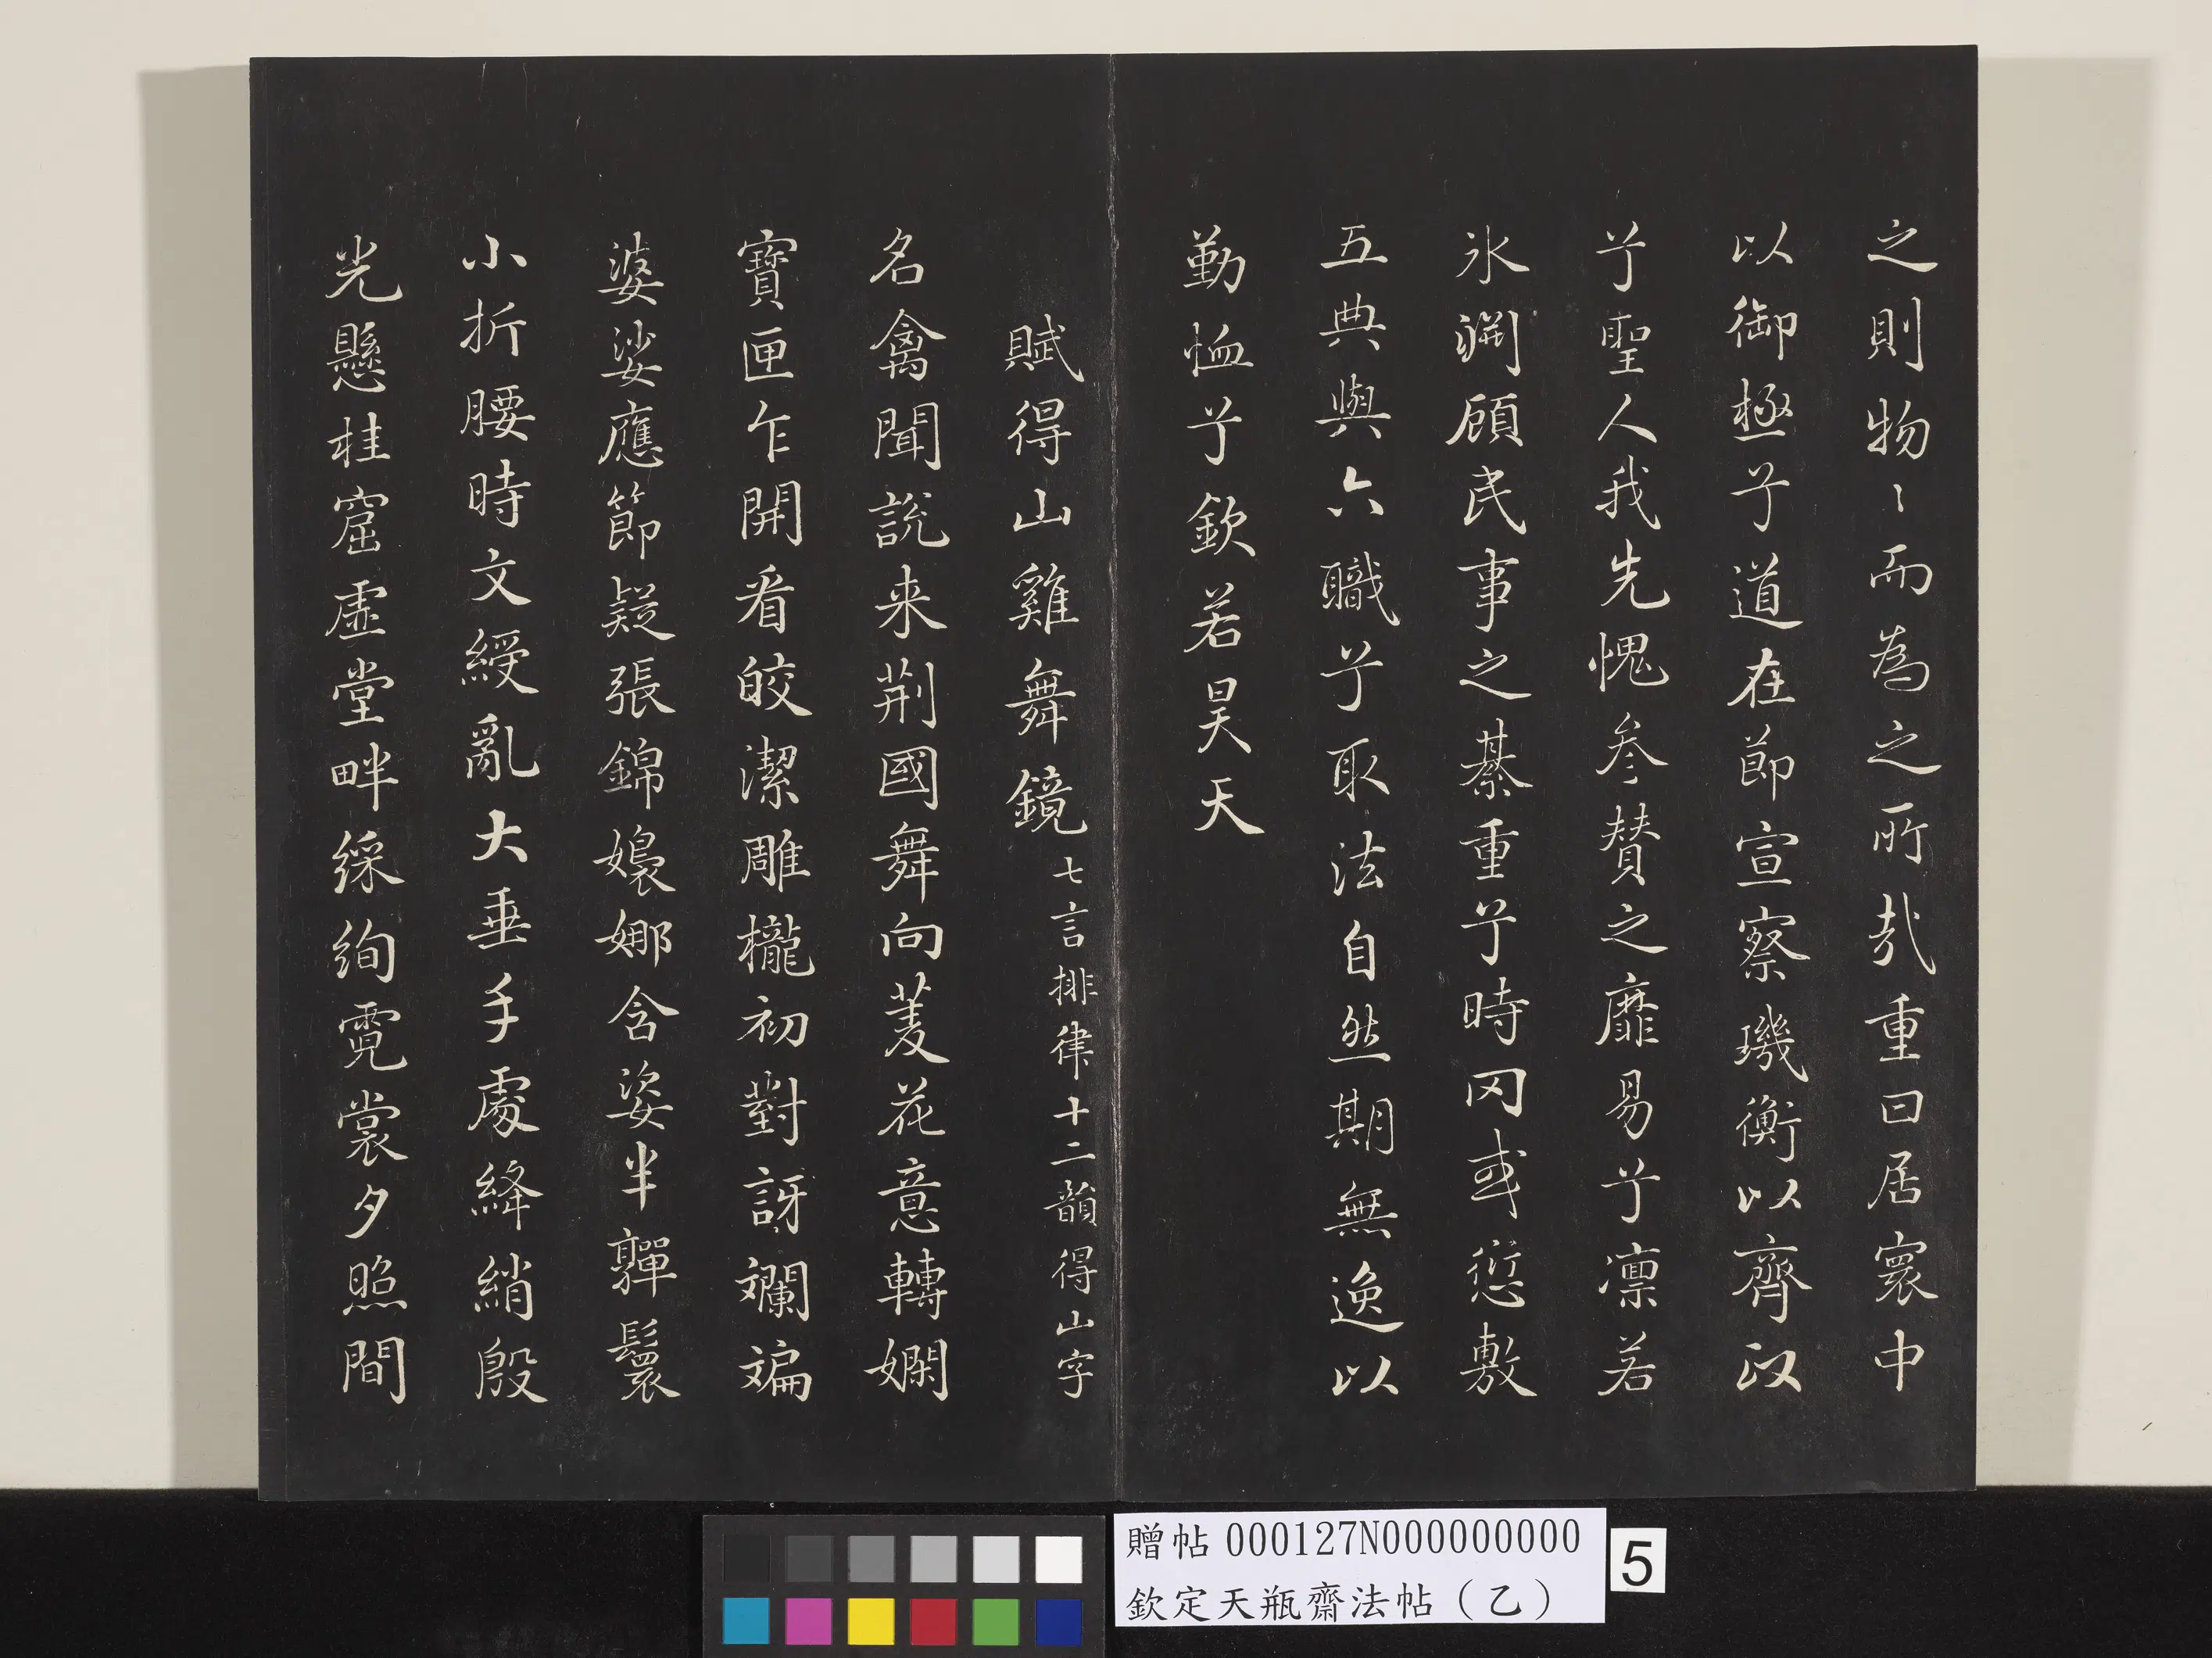 之則物〻而為之所哉重曰居寰中
以御極兮道在節宣察璣衡以齊政
兮聖人我先愧參賛之靡易兮凛若
氷淵顧民事之綦重兮時罔或愆敷
五典與六職兮取法自然期無逸以
勤恤兮欽若昊天
賦得山雞舞鏡七言排律十二韻得山字
名禽聞說来荆國舞向菱花意轉嫻
寶匣乍開看皎潔雕櫳初對訝斕斒
婆娑應節疑張錦嬝娜含姿半嚲鬟
小折腰時文綬亂大垂手處絳綃殷
光懸桂窟虛堂畔綵絢霓裳夕照間
贈帖 000127N000000000
欽定天瓶齋法帖（乙）
5